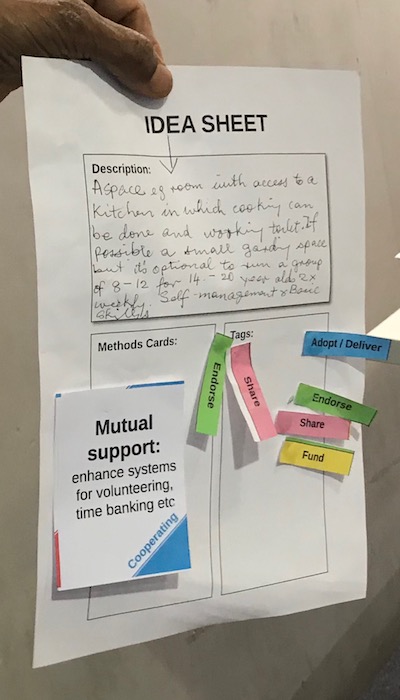 IDEA SHEET
Description:
A space eg room with access to a
kitchen in which cooking can
be done and working toilet. If
possible a small garden space
but it's optional to run a group
of 8-12 for 14-20 year olds 2x
weekly. Self-management & Basic
Skills
Methods Cards:
Tags:
Endorse
Share
Adopt / Deliver
Endorse
Share
Fund
Mutual
support:
enhance systems
for volunteering,
time banking etc
Cooperating